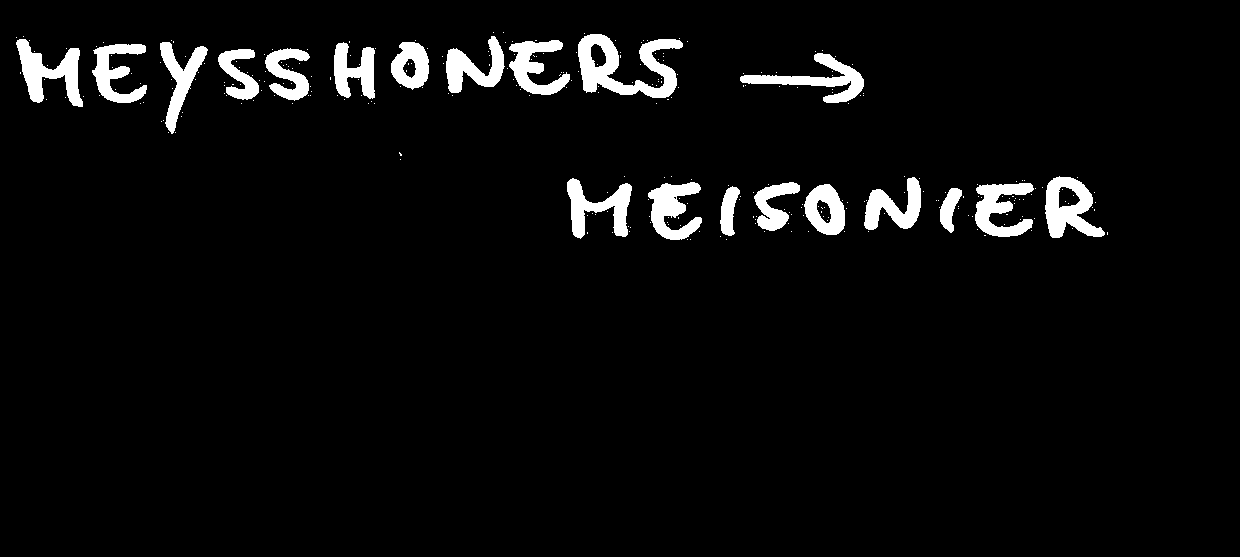 MEYSSHONERS →
MEISONIER